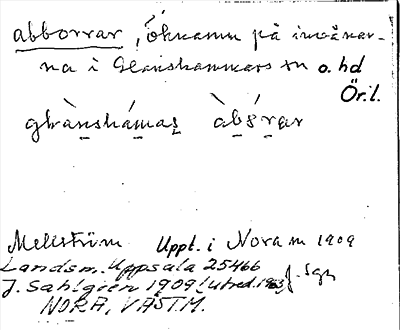 abborrar, öknamn på invånar-
na i Glanshammars sn o. hd
Ör.l.
glànshámas àbárar
Mellström Uppt. i Nora sn 1909
Landsm. Uppsala 25466
J. Sahlgren 1909 (utred. 1963) } Sgn
NORA, VÄSTM.